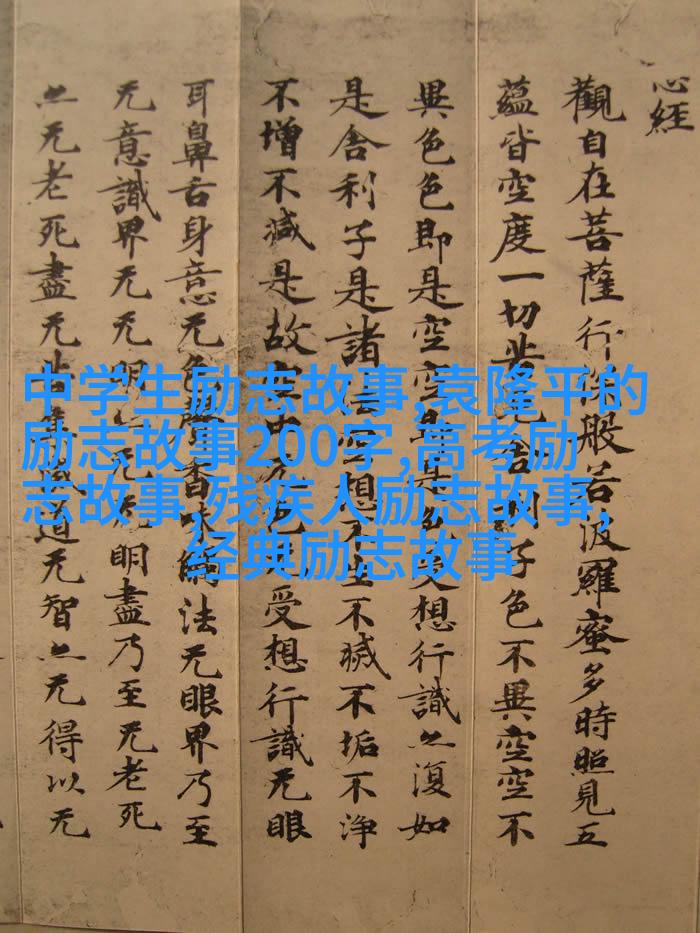 中学生励志故事,袁隆平的
励志故事200字,高考励
志故事,残疾人励志故事,
经典励志故事
心經
觀自在菩薩行般若波羅蜜多時照見五
蘊皆空度一切子色不異空空不
異色色即是空空想行識亦復如
是舍利子是諸空想不不滅不垢不淨
不增不減是故空中受想行識无眼
耳鼻舌身意无色香味法无眼界乃至
无意識界无无明亦无明盡乃至无老死
亦无老死盡无道无智亦无得以无